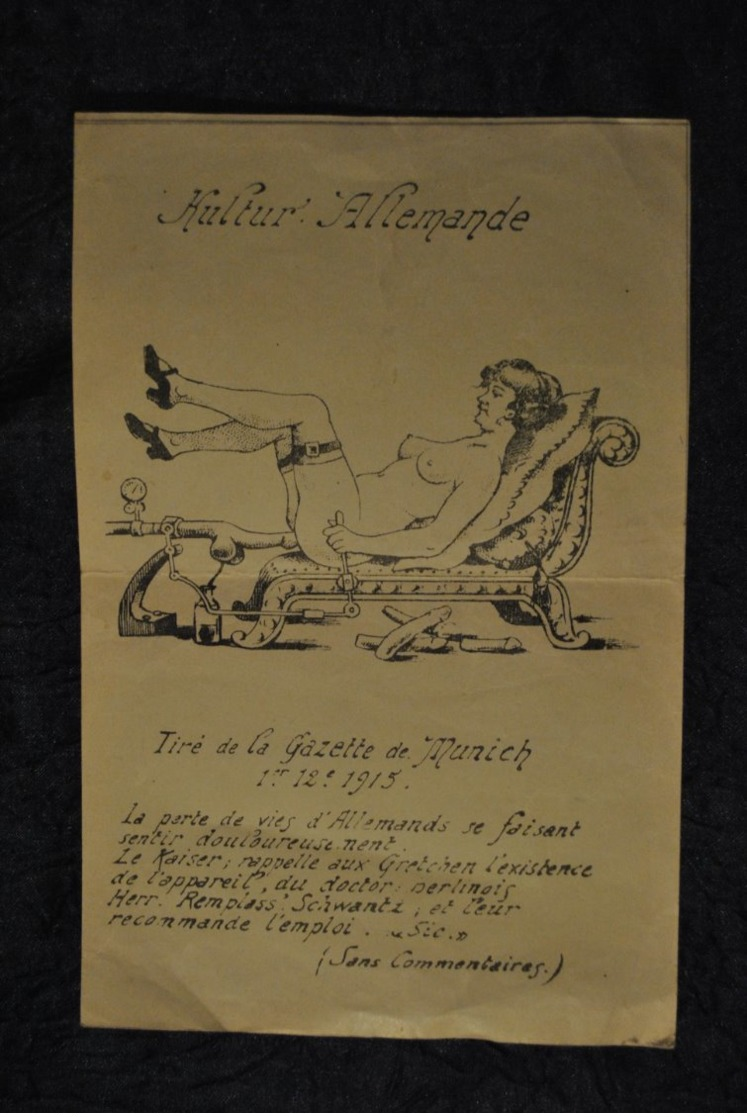 Kultur. Allemande
Tiré de la Gazette de Munich
1er 12e 1915.
La perte de vies d'Allemands se faisant
sentir douloureusement.
Le Kaiser, rappelle aux Gretchen l'existence
de l'appareil, du doctor berlinois
Herr. Remplass' Schwantz, et leur
recommande l'emploi. « Sic. »
(Sans Commentaires.)